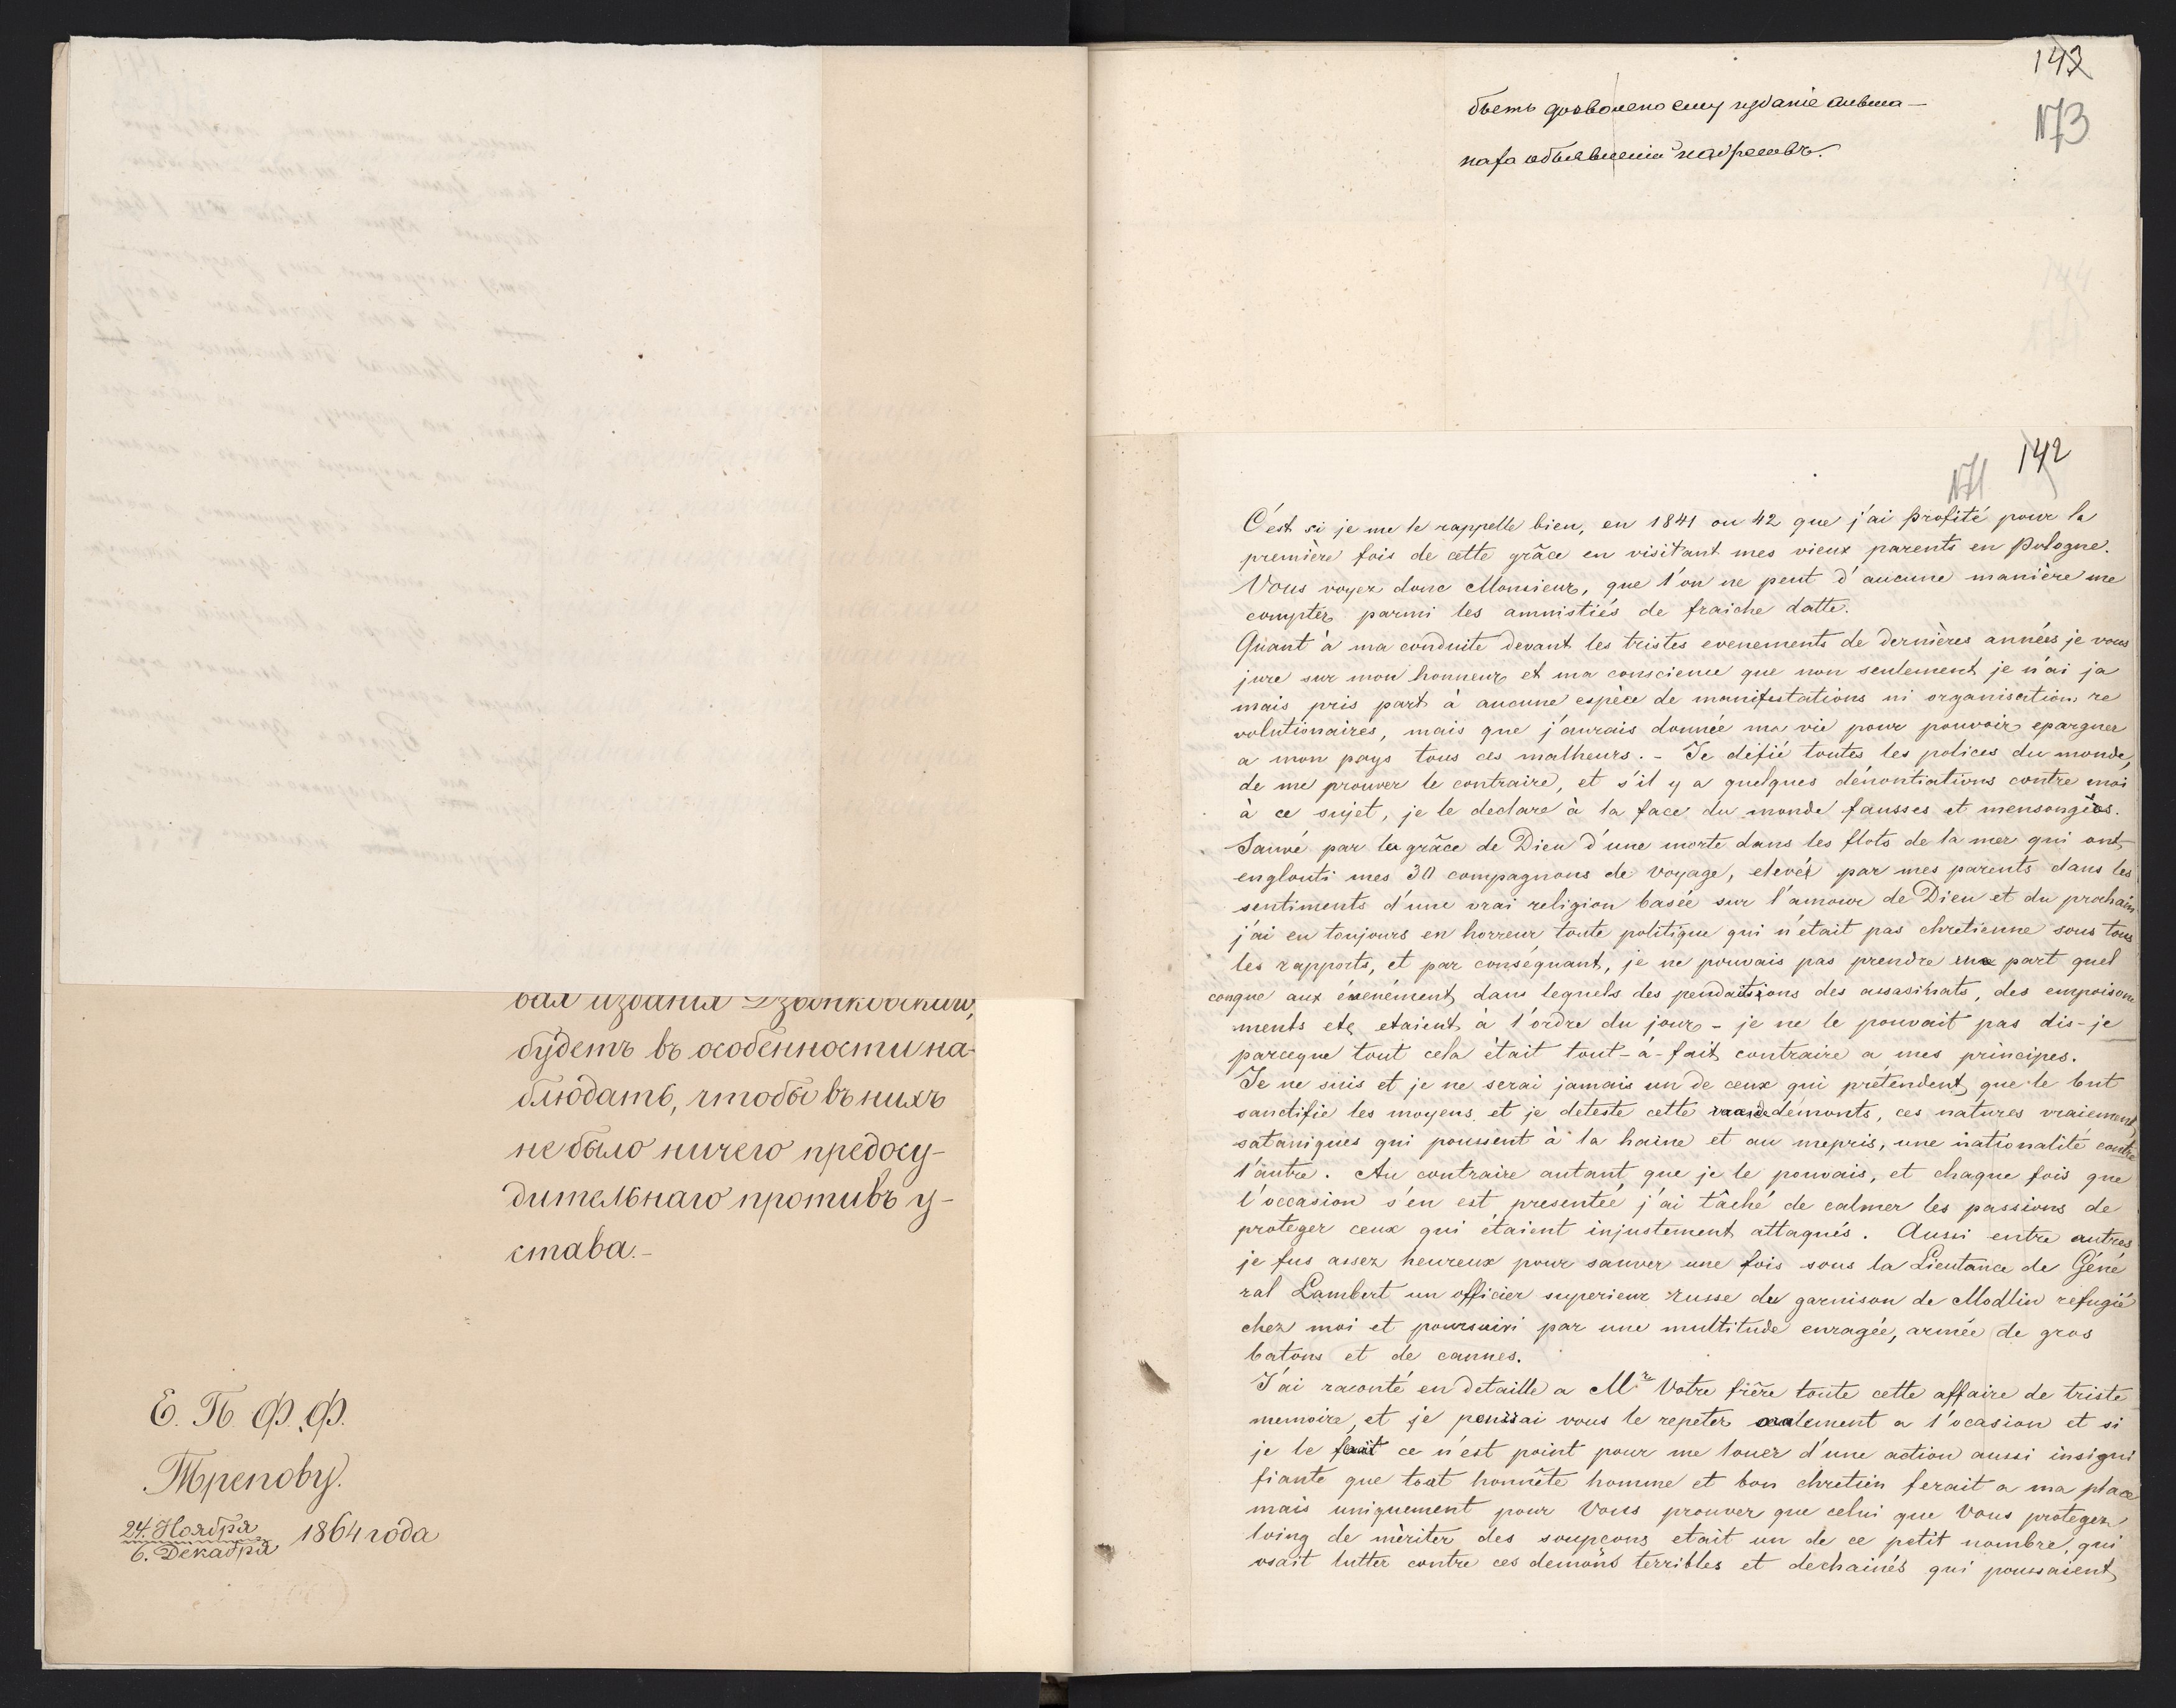 вая изданія Дзвонковскаго,
будетъ въ особенности на-
блюдать, чтобы въ нихъ
не было ничего предосу-
дительнаго противъ у-
става.-
Е. П. Ф. Ф.
Трепову.
24. Ноября
6. Декабря 1864 года
143
173
бетъ дозволено ему изданіе
142
171
C'est si je me le rappelle bien, en 1841 ou 42 que j'ai profité pour la
première fois de cette grâce en visitant mes vieux parents en Pologne.
Vous voyez donc Monsieur, que l'on ne peut d'aucune manière me
compter parmi les amnistiés de fraiche datte.
Quant à ma conduite devant les tristes evenements de dernières années je vous
jure sur mon honneur et ma conscience que non seulement je n'ai ja
mais pris part à aucune espèce de manifestations ni organisations re
volutionaires, mais que j'aurais donnée ma vie pour pouvoir epargner
a mon pays tous ces malheurs. - Je défié toutes les polices du monde,
de me prouver le contraire, et s'il y a quelques dénontiations contre moi
à ce sujet, je le declare à la face du monde fausses et mensongères.
Sauvé par la grâce de Dieu d'une morte dans les flots de la mer qui ont
englouti mes 30 compagnons de voyage, elevé par mes parents dans les
sentiments d'une vrai religion basée sur l'amour de Dieu et du prochain
j'ai eu toujours en horreur toute politique qui n'était pas chretienne sous tous
les rapports, et par conséquant, je ne pouvais pas prendre part quel
conque aux événément, dans lequels des pendaisions des assasinats, des empoisone
ments etc etaient à l'ordre du jour - je ne le pouvait pas dis-je
parceque tout cela était tout-à-fait contraire a mes principes.
Je ne suis et je ne serai jamais un de ceux qui prétendent, que le but
sanctifie les moyens et je deteste cette démonts, ces natures vraiement
sataniques qui poussent à la haine et au mepris, une nationalité contre
l'autre. Au contraire autant que je le pouvais, et chaque fois que
l'occasion s'en est presentée j'ai tâché de calmer les passions de
proteger ceux qui étaient injustement attaqués. Aussi entre autres
je fus assez heureux pour sauver une fois sous la Lieutance de Géné
ral Lambert un officier superieur russe de garnison de Modlin refugié
chez moi et poursuivi par une multitude enragée, armée de gros
batons et de cannes.
J'ai raconté en detaille a Mr Votre frère toute cette affaire de triste
memoire, et je pourrai vous le repeter oralement a l'ocasion et si
je le fait ce n'est point pour me louer d'une action aussi insigni
fiante que tout honnête homme et bon chretien ferait a ma place
mais uniquement pour Vous prouver que celui que Vous protegez
loing de mèriter des soupçons etait un de ce petit nombre, qui
osait lutter contre ces demons terribles et dechainés qui poussaient